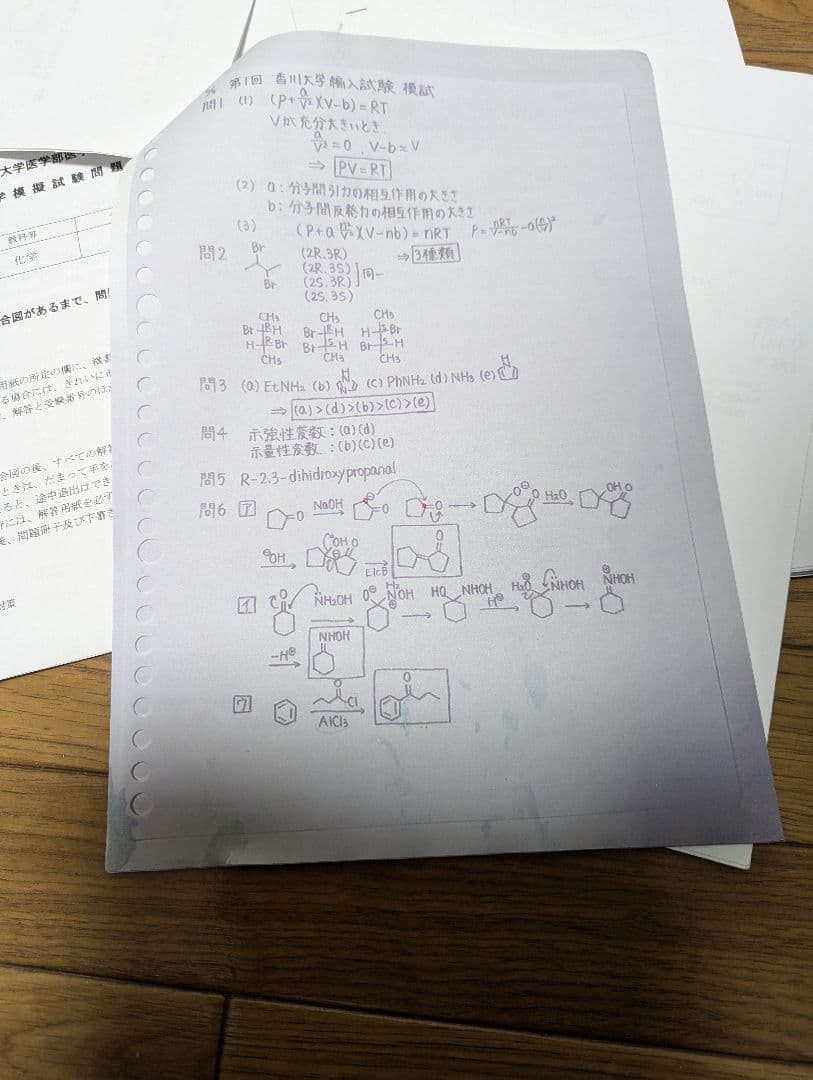 第1回 香川大学編入試験 模試
問1 (1) (P+a/V²)(V-b)=RT
Vが充分大きいとき
a/V²≒0, V-b≒V
⇒ PV=RT
(2) a:分子間引力の相互作用の大きさ
b:分子間反発力の相互作用の大きさ
(3) (P+a n²/V²)(V-nb)=nRT P=nRT/V-nb-a(n/V)²
問2 Br Br (2R,3R) ⇒3種類
(2R,3S)
(2S,3R) 同一
(2S,3S)
CH₃ CH₃ CH₃
Br R H Br R H H S Br
H R Br Br S H Br S H
CH₃ CH₃ CH₃
問3 (a) EtNH₂ (b) (c) PhNH₂ (d) NH₃ (e)
⇒ (a)>(d)>(b)>(c)>(e)
問4 示強性変数:(a)(d)
示量性変数:(b)(c)(e)
問5 R-2.3-dihidroxypropanal
問6 ア O NaOH ⊖ O O → O⊖ O H₂O OH O
⊖OH OH O E1cB O
イ O N̈H₂OH O⊖ H₂ NOH ⊕ HO NHOH H⊕ H₂O⊕ N̈HOH ⊕ NHOH
-H⊕ NHOH
ウ O Cl AlCl₃ O
大学医学部医
学模擬試験問題
教科等
化学
合図があるまで、問
用紙の所定の欄に、
る場合には、きれいに
、解答と受験番号のほ
合図の後、すべての解答
ときは、だまって手を
ると、途中退出はでき
には、解答用紙を必ず
後、問題冊子及び下書き
対策